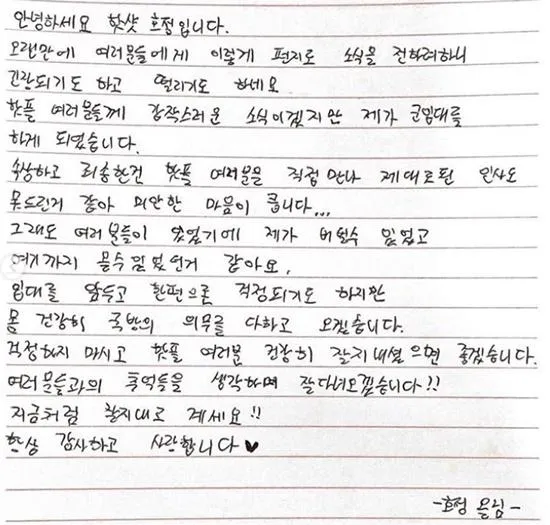 안녕하세요 핫샷 호정입니다.
오랜만에 여러분들에게 이렇게 편지로 소식을 전하려하니
긴장되기도 하고 떨리기도 하네요
핫플 여러분들께 갑작스러운 소식이겠지만 제가 군입대를
하게 되었습니다.
속상하고 죄송한건 핫플 여러분을 직접 만나 제대로된 인사도
못드린거 같아 미안한 마음이 큽니다...
그래도 여러분들이 있었기에 제가 버틸수 있었고
여기까지 올수 있었던거 같아요.
입대를 앞두고 한편으로 걱정되기도 하지만
몸 건강히 국방의 의무를 다하고 오겠습니다.
걱정하지 마시고 핫플 여러분 건강히 잘지내셨으면 좋겠습니다.
여러분들과의 추억들을 생각하며 잘다녀오겠습니다!!
지금처럼 잘지내고 계세요!!
항상 감사하고 사랑합니다♥
-호정 올림-